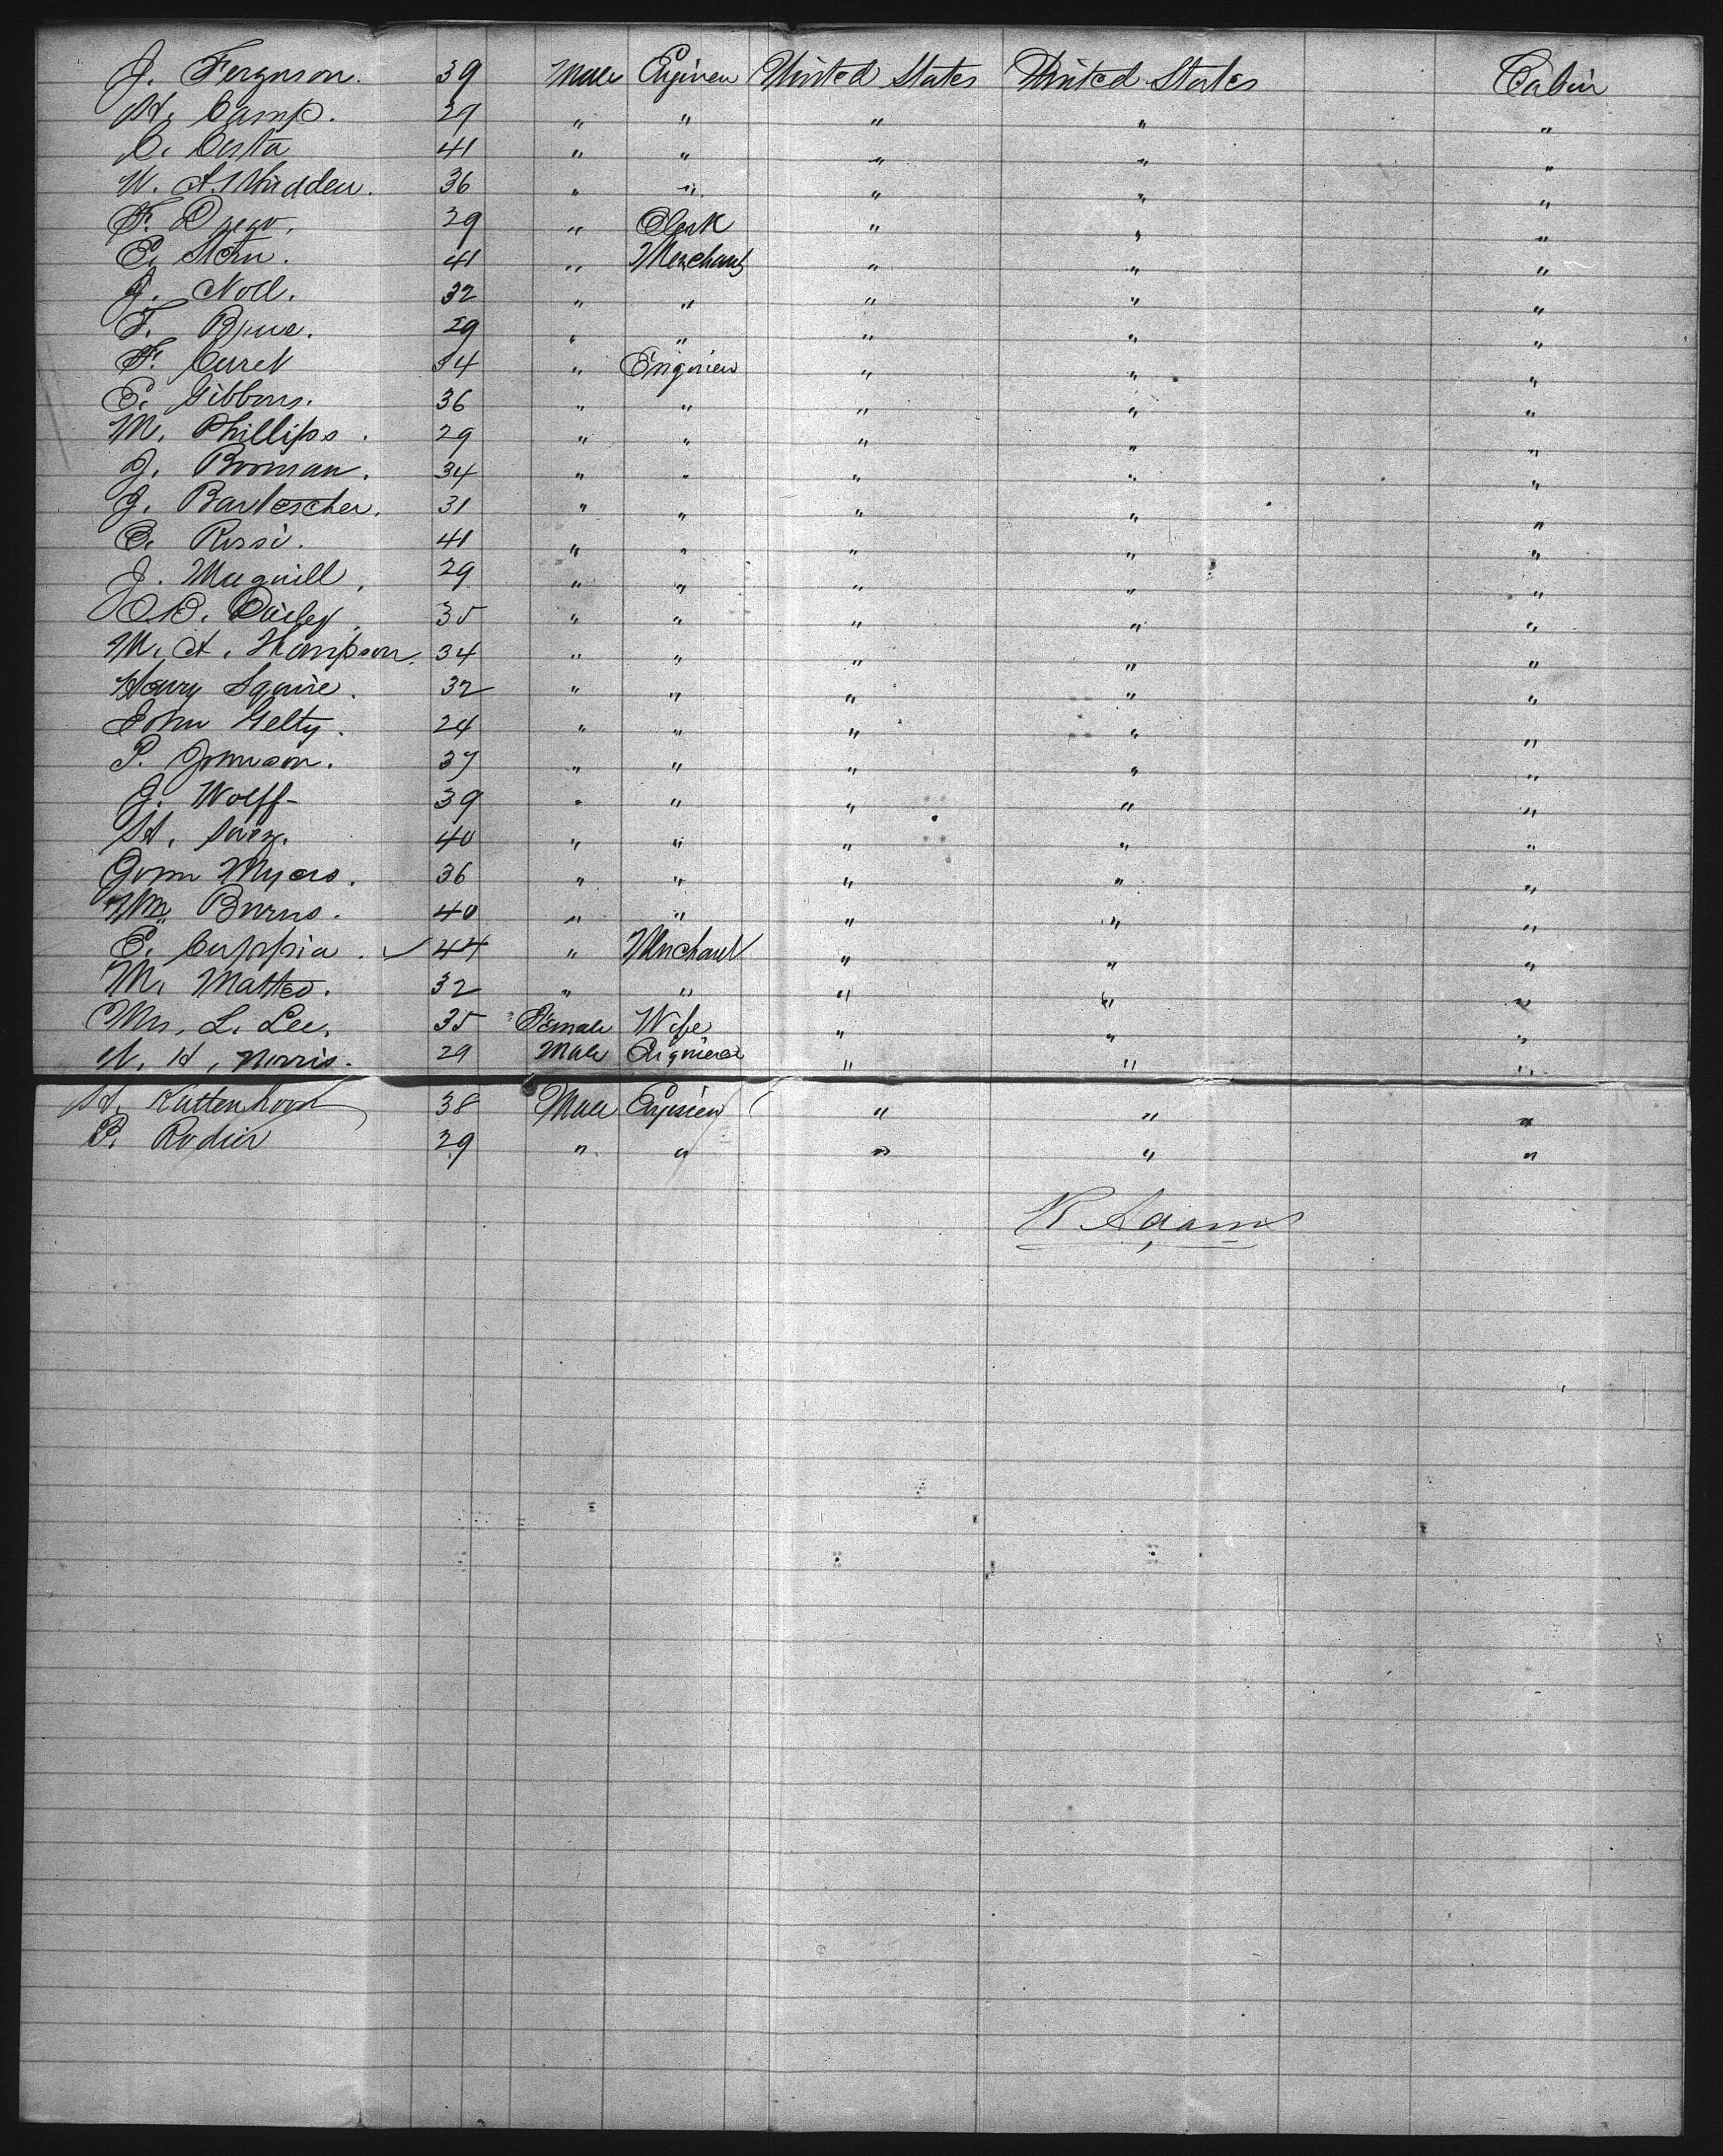 J. Ferguson. 39 Male Engineer United States United States Cabin
H. Camp. 29 " " " " "
C. Costa 41 " " " " "
W. A. Madden. 36 " " " " "
F. 29 " Clerk " " "
E. Stern. 41 " Merchant " " "
J. Noll. 32 " " " " "
F. 29 " " " " "
F. 34 " Engineer " " "
E. Gibbons. 36 " " " " "
M. Phillips. 29 " " " " "
J. Borman. 34 " " " " "
J. Bartescher. 31 " " " " "
C. Rossi. 41 " " " " "
J. 29 " " " " "
Dailey. 35 " " " " "
M. A. Hampson. 34 " " " " "
Harry Squire. 32 " " " " "
John Gelty. 24 " " " " "
P. Johnson. 37 " " " " "
J. Wolff 39 " " " " "
H. 40 " " " " "
John Myers. 36 " " " " "
Wm Burns. 40 " " " " "
E. Cuppia. 44 " Merchant " " "
M. Matteo. 32 " " " " "
Mrs. L. Lee. 35 Female Wife " " "
N. H. Norris. 29 Male Engineer " " "
H. Kattenhorn 38 Male Engineer " " "
P. Rodier 29 " " " " "
R Adams